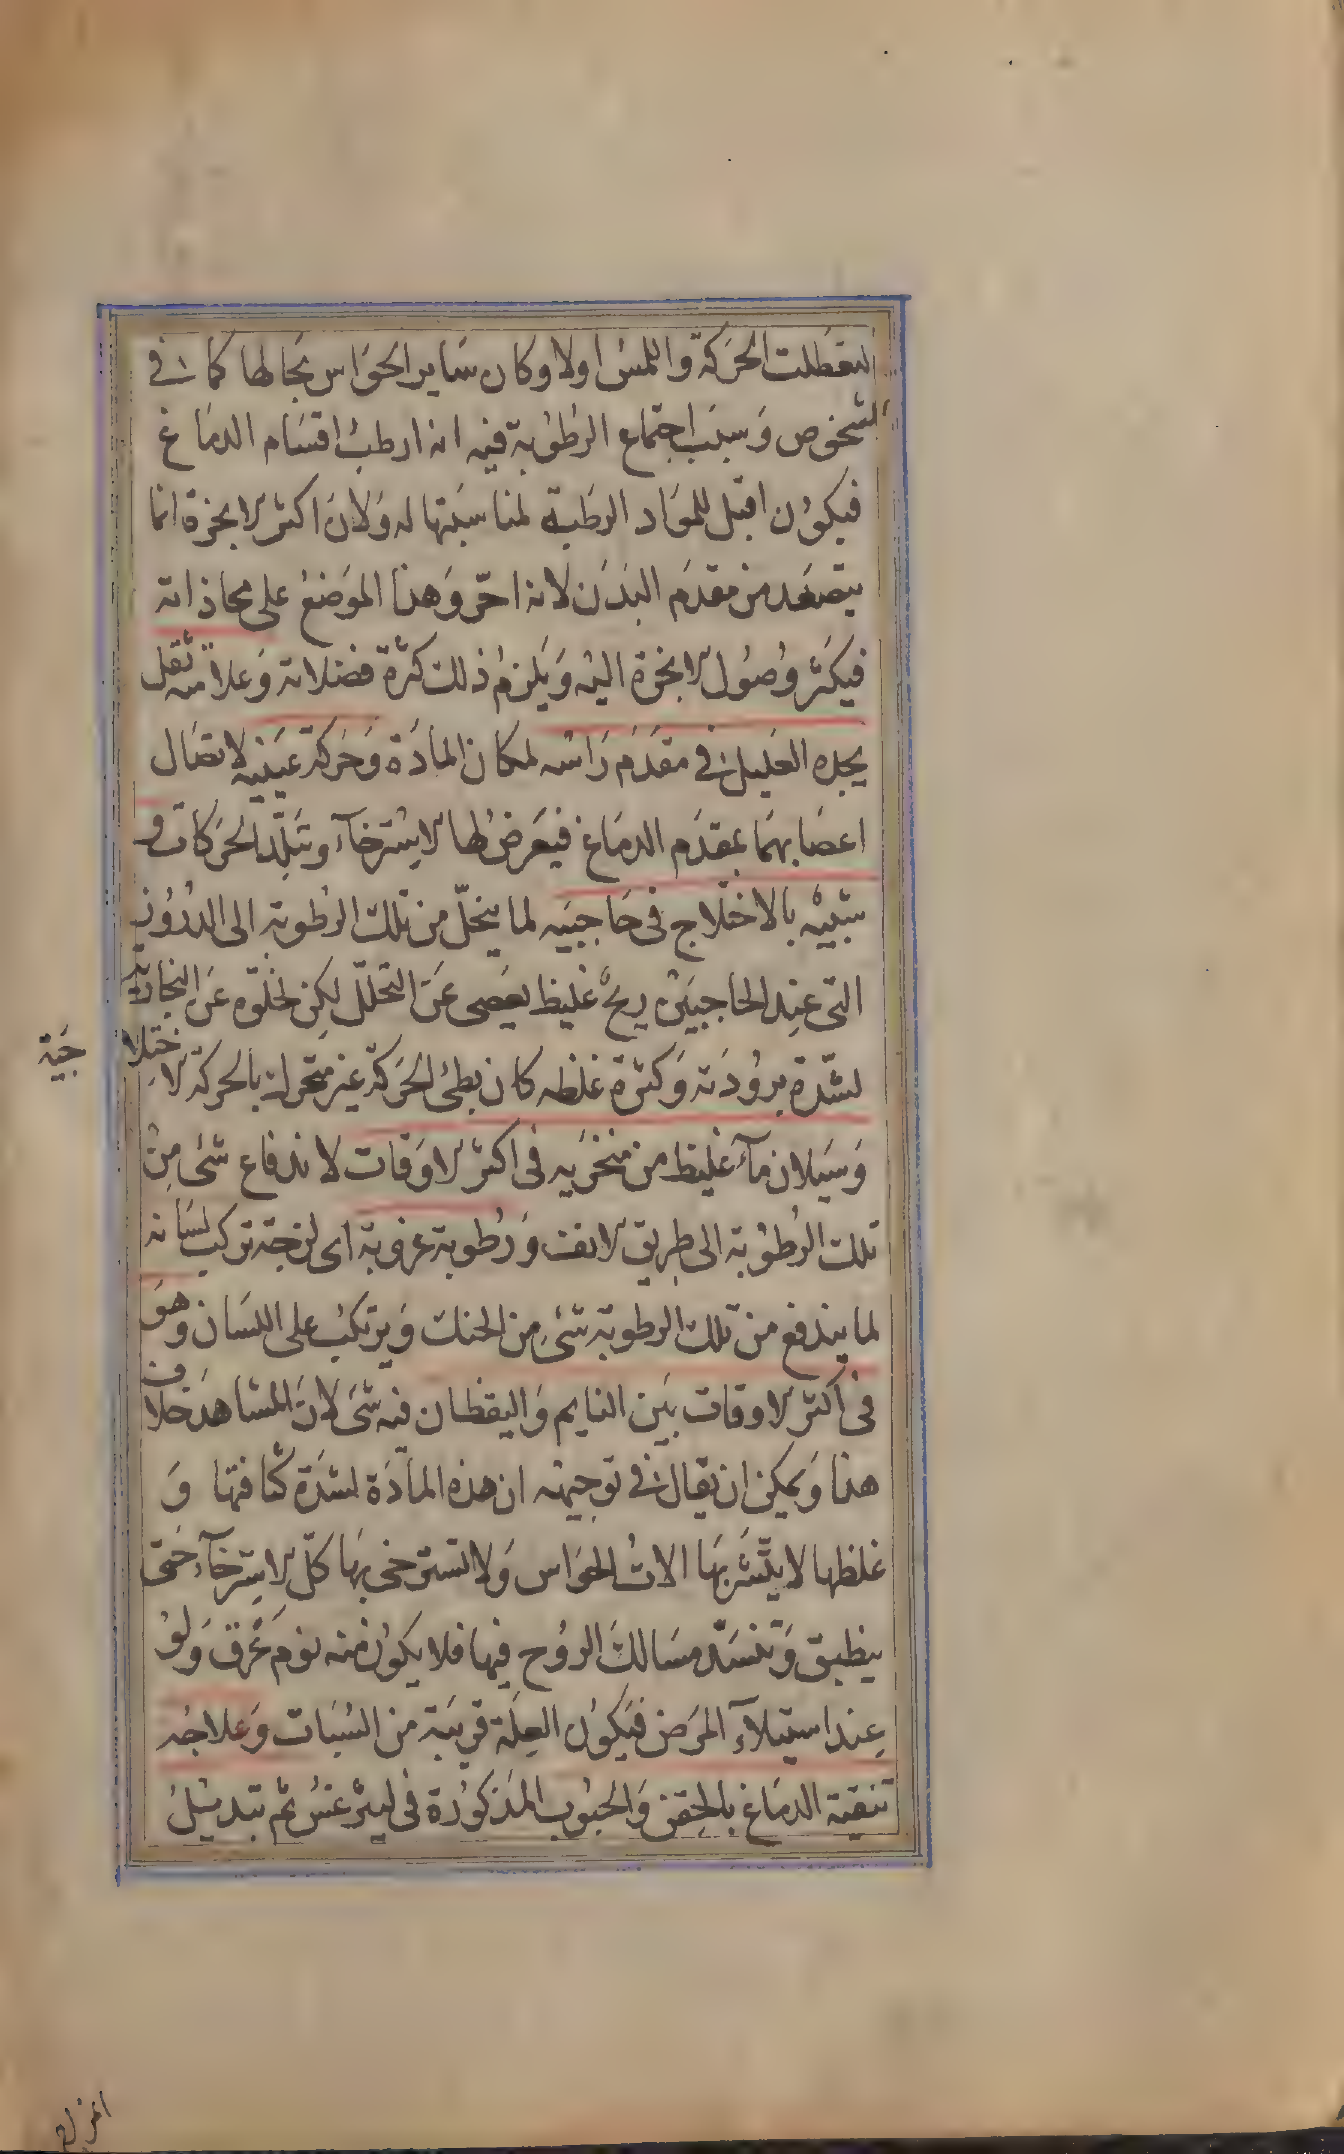 لتعطلت الحركة واللمس اولا وكان ساير الحواس بحالها كما في
الشخوص وسبب اجتماع الرطوبة فيه انه ارطب اقسام الدماغ
فيكون اقبل للمواد الرطبة لمناسبتها له ولان اكثر الابخرة انما
يتصعد من مقدم البدن لانه احر وهذا الموضع على محاذاته
فيكثر وصول الابخرة اليه ويلزم ذلك كثرة فضلاته وعلامته ثقل
يجده العليل في مقدم راسه لمكان المادة وحركة عينيه لاتصال
اعصابهما بمقدم الدماغ فيعرض لها الاسترخاء وتبلد الحركات و
شبيه بالاختلاج في حاجبيه لما ينحل من تلك الرطوبة الى الدروز
التي عند الحاجبين ريح غليظ يعصى عن التحلل لكن لخلوه عن النارية
لشدة برودته وكثرة غلظه كان بطئ الحركة غير متحرك بالحركة الاختلا
جية
وسيلان ماء غليظ من منخريه في اكثر الاوقات لاندفاع شئ من
تلك الرطوبة الى طريق الانف ورطوبة غروية اى لزجة تركب لسانه
لما يندفع من تلك الرطوبة شئ من الحنك ويرتكب على اللسان وهو
في اكثر الاوقات بين النايم واليقظان فيه شئ لان المشاهد خلاف
هذا ويمكن ان يقال في توجيهه ان هذه المادة لشدة كثافتها و
غلظها لا يتشربها الات الحواس ولا تسترخى بها كل الاسترخاء حتى
ينطبق وتنسد مسالك الروح فيها فلا يكون منه نوم غرق ولو
عند استيلاء المرض فيكون العلة قريبة من السبات وعلاجه
تنقية الدماغ بالحقن والحبوب المذكورة في ليثرغس ثم تبديل